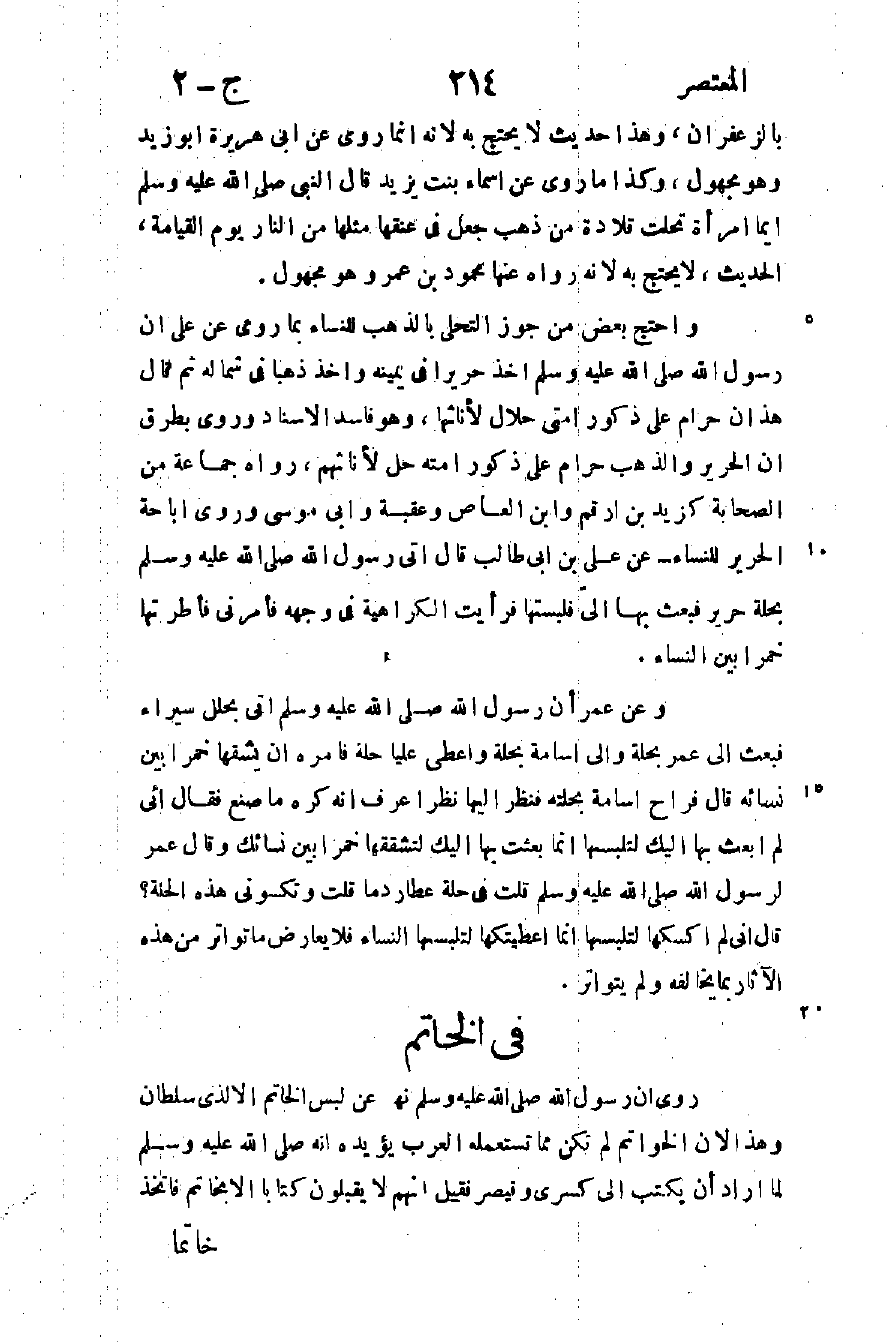 المعتصر ٣١٤ ج - ٢
بالزعفران، وهذا حديث لا يحتج به لانه انما روى عن ابى هريرة ابو زيد
وهو مجهول، وكذا ما روى عن اسماء بنت يزيد قال النبى صلى الله عليه وسلم
ايما امرأة تحلت قلادة من ذهب جعل فى عنقها مثلها من النار يوم القيامة،
الحديث، لا يحتج به لانه رواه عنها محمود بن عمرو هو مجهول.
٥ واحتج بعض من جوز التحلى بالذهب للنساء بما روى عن على ان
رسول الله صلى الله عليه وسلم اخذ حريرا فى يمينه واخذ ذهبا فى شماله ثم قال
هذان حرام على ذكور امتى حلال لأناثها، وهو فاسد الاسناد وروى بطرق
ان الحرير والذهب حرام على ذكور امته حل لأناثهم، رواه جماعة من
الصحابة كزيد بن ارقم وابن العاص وعقبة وابى موسى وروى اباحة
١٠ الحرير للنساء - عن على بن ابى طالب قال اتى رسول الله صلى الله عليه وسلم
بحلة حرير فبعث بها الىّ فلبستها فرأيت الكراهية فى وجهه فأمرنى فأطرتها
خمرا بين النساء.
وعن عمر أن رسول الله صلى الله عليه وسلم اتى بحلل سيراء
فبعث الى عمر بحلة والى اسامة بحلة واعطى عليا حلة فامره ان يشقها خمرا بين
١٥ نسائه قال فراح اسامة بحلته فنظر اليها نظرا عرف انه كره ما صنع فقال انى
لم ابعث بها اليك لتلبسها انما بعثت بها اليك لتشققها خمرا بين نسائك وقال عمر
لرسول الله صلى الله عليه وسلم قلت فى حلة عطارد ما قلت وتكسونى هذه الحلة؟
قال انى لم اكسكها لتلبسها انما اعطيتكها لتلبسها النساء فلا يعارض ما تواتر من هذه
الآثار بما يخالفه ولم يتواتر.
٢٠
فى الخاتم
روى ان رسول الله صلى الله عليه وسلم نه عن لبس الخاتم الا لذى سلطان
وهذا لان الخواتم لم تكن مما تستعمله العرب يؤيده انه صلى الله عليه وسلم
لما اراد أن يكتب الى كسرى وقيصر فقيل انهم لا يقبلون كتابا الا بخاتم فاتخذ
خاتما